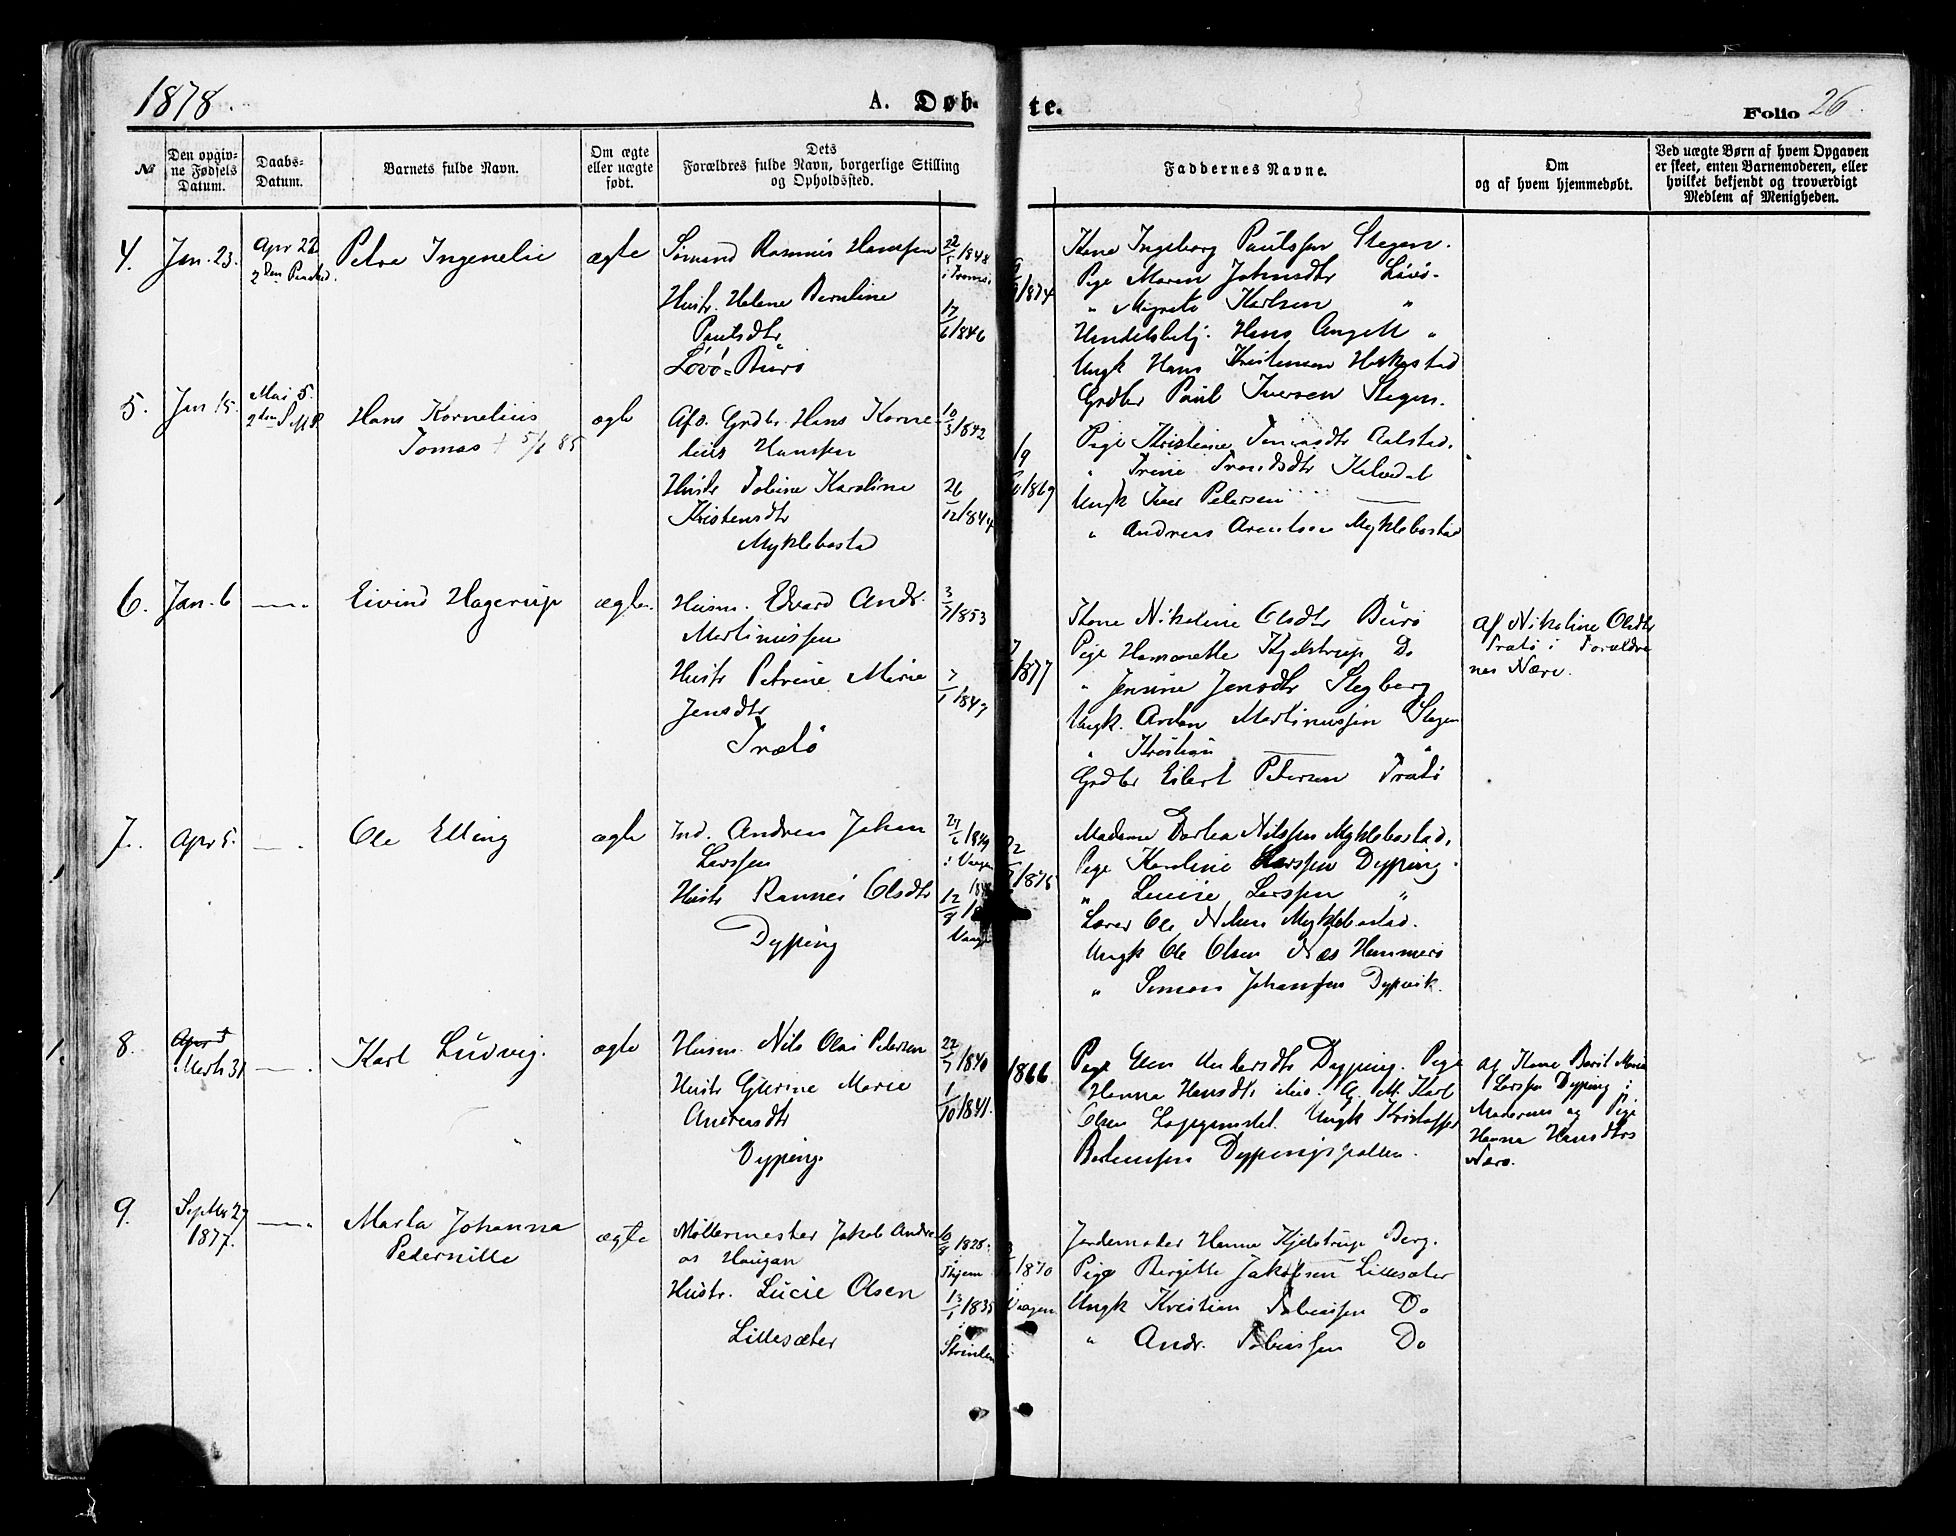 1878.
A. Døb-
te.
Folio 26.
№
Den opgiv-
ne Fødsels
Datum.
Daabs-
Datum.
Barnets fulde Navn.
Om ægte
eller uægte
født.
Dets
Forældres fulde Navn, borgerlige Stilling
og Opholdssted.
Faddernes Navne.
Om
og af hvem hjemmedøbt.
Ved uægte Børn af hvem Opgaven
er skeet, enten Barnemoderen, eller
hvilket bekjendt og troværdigt
Medlem af Menigheden.
4.
Jan. 23.
Apr 22
2den
Petra Ingenelie
ægte
Sømand Rasmus Hanssen
Hustr. Helene Berntine
Paulsdtr
Løvø-Burø
22/1 1848
i Tromsø
17/6 1846
1874
Kone Ingeborg Paulssen Stegen.
Pige Maren Johnsdtr Løvø.
" Magrete Karlsen "
Handelsbetj. Hans Angell "
Ungk Hans Kristensen
Grdbr Paul Iversen Stegen.
5.
Jan 15.
Mai 5.
2den S.
Hans Kornelius
Tomas † 5/6 85
ægte
Afd. Grdbr. Hans Korne-
lius Hanssen
Hustr Tobine Karoline
Kristensdtr
Myklebostad
10/3 1842
26/12 1844
1869
Pige Kristiane Aalstad.
" Trine
Ungk Iver Petersen
" Andreas Arentsen Myklebostad
6.
Jan. 6
—"—
Eivind Hagerup
ægte.
Husm. Edvard Andr.
Martinussen
Hustr Petrine Marie
Jensdtr
Trætø
3/7 1853
7/1 1847
1877
Kone Nikoline Olsdtr Burø
Pige Kjelstrup Do
" Jensine Jensdtr Stegberg
Ungk. Martinussen Stegen
" Kristian —— "
Grdbr Eilert Petersen Trætø
Af Nikoline Olsdtr
Trætø i Forældre-
nes Nærv.
7.
Apr 5.
—"—
Ole Elling
ægte
Ind. Andreas Johan
Larssen
Hustr Rannei Olsdtr
Dyping
1849
i Vaagen
12/9
Vaag
1875
Madame Dorthea Nilssen Myklebostad.
Pige Karoline Larssen Dyping.
" Louise Larssen "
Lærer Ole Nilsen Myklebostad.
Ungk Ole Olsen Næs Hammerø
" Simon Johansen Dypvik.
8.
Marts 31
—"—
Karl Ludvig.
ægte
Husm. Nils Olai Petersen
Hustr Gjertine Marie
Andreasdtr
Dyping.
22/5 1840
1/10 1841.
1866
Pige Elen Andersdtr Dyping. Pige
Hanna Hansdtr G. M. Karl
Olsen Ungk Kristoffer
Berntssen Dypingspollen.
Af Kone Berit Maria
Larssen Dyping i
Moderens og Pige
Hanna Hansdtrs
Nærv.
9.
Septbr 27
1877.
—"—
Marta Johanna
Pedernille
ægte
Møllermester Jakob Andre-
as Haugan
Hustr. Lucie Olsen
Lillesæter
1828.
13/1 1835
1870
Jordemoder Hanna Kjelstrup Berg.
Pige Bergitte Jakobsen Lillesæter
Ungk Kristian Tobiassen Do
" Andr. Tobiassen Do